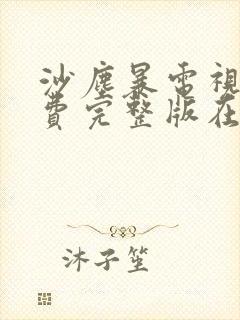 沙塵暴電視
費完整版在
沐子笙